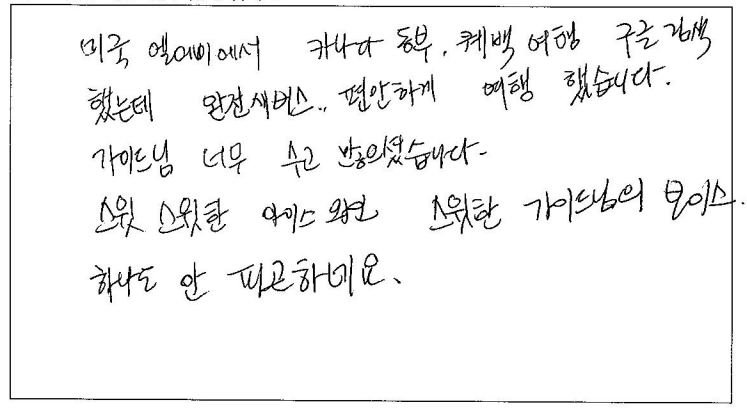 미국 엘에이에서 카나다 동부, 퀘백 여행 구글 검색
했는데 완전새버스.. 편안하게 여행 했습니다.
가이드님 너무 수고 많으셨습니다-
스윗 스윗한 아이스 와인 스윗한 가이드님의 보이스.
하나도 안 피곤하네요.